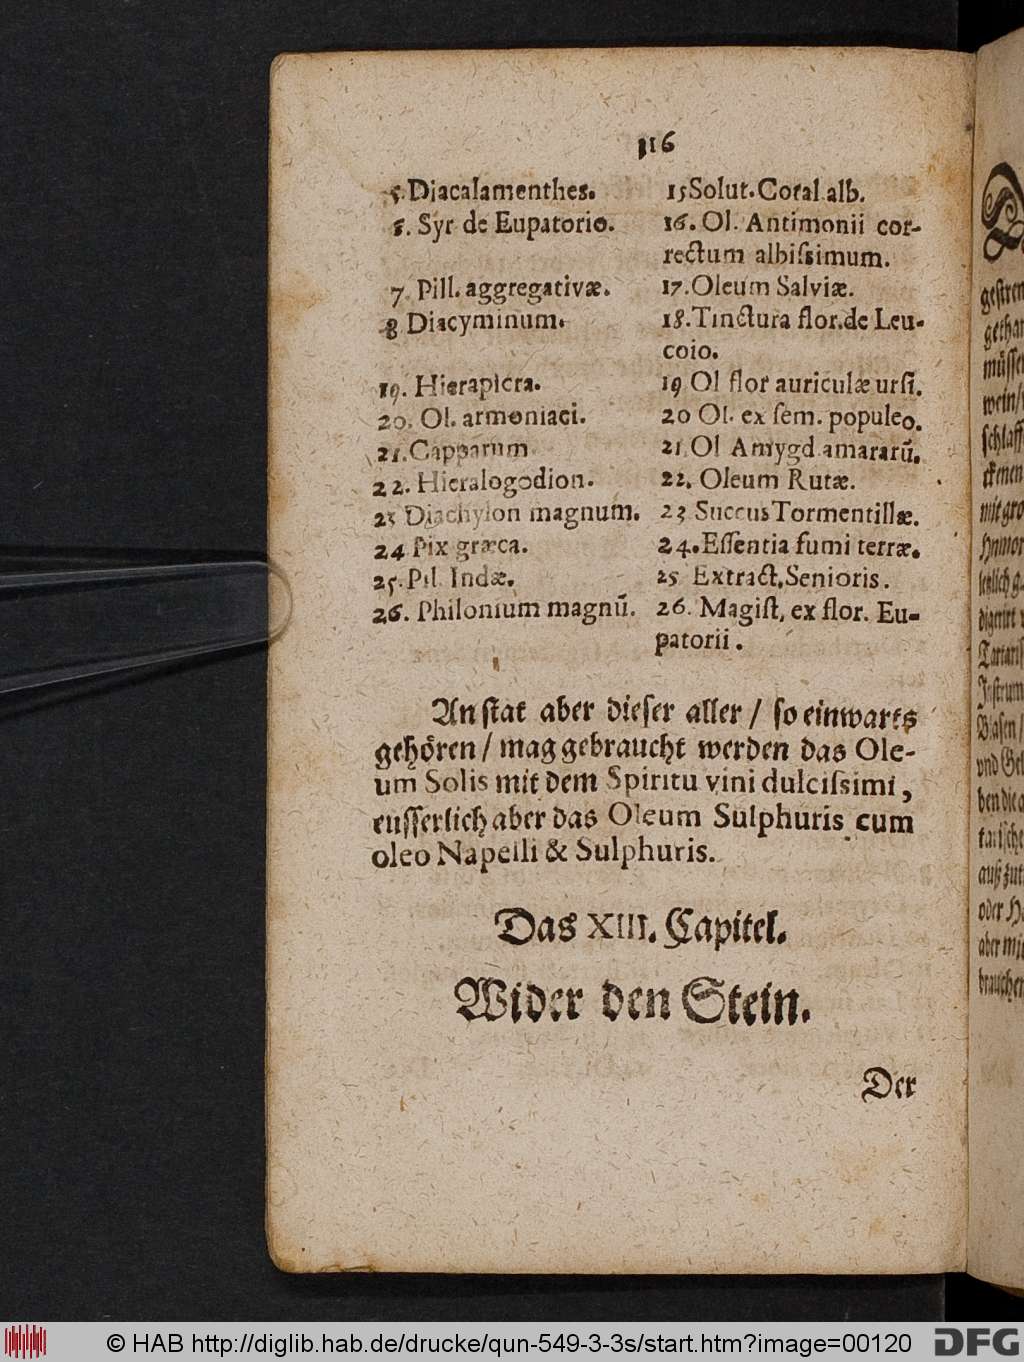 116
5 Diacalamenthes.
6. Syr de Eupatorio.
7 Pill. aggregativæ.
8 Diacyminum.
19. Hierapicra.
20. Ol. armoniaci.
21. Capparum
22. Hieralogodion.
23 Diachylon magnum.
24 Pix græca.
25. Pil. Indæ.
26. Philonium magnũ.
15 Solut. Coral alb.
16. Ol. Antimonii cor-
rectum albiſsimum.
17. Oleum Salviæ.
18. Tinctura flor. de Leu-
coio.
19 Ol flor auriculæ urſi.
20 Ol. ex ſem. populeo.
21 Ol Amygd amararũ.
22. Oleum Rutæ.
23 Succus Tormentillæ.
24. Eſſentia fumi terræ.
25 Extract. Senioris.
26. Magiſt, ex flor. Eu-
patorii.
An ſtat aber dieſer aller / ſo einwarts
gehören / mag gebraucht werden das Ole-
um Solis mit dem Spiritu vini dulciſsimi,
euſſerlich aber das Oleum Sulphuris cum
oleo Napelli & Sulphuris.
Das XIII. Capitel.
Wider den Stein.
Der
© HAB http://diglib.hab.de/drucke/qun-549-3-3s/start.htm?image=00120
DFG